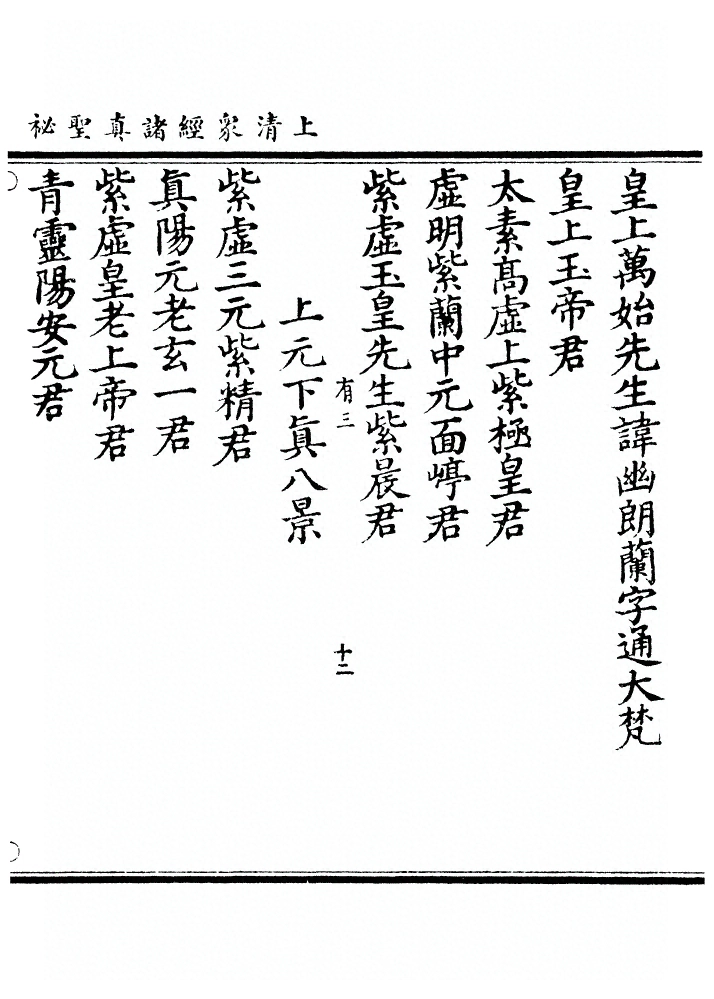 上清眾經諸真聖祕
皇上萬始先生諱幽朗蘭字通大梵
皇上玉帝君
太素髙虛上紫極皇君
虛明紫蘭中元面㟁君
紫虛玉皇先生紫晨君
有三
十二
上元下眞八景
紫虛三元紫精君
眞陽元老玄一君
紫虛皇老上帝君
青靈陽安元君